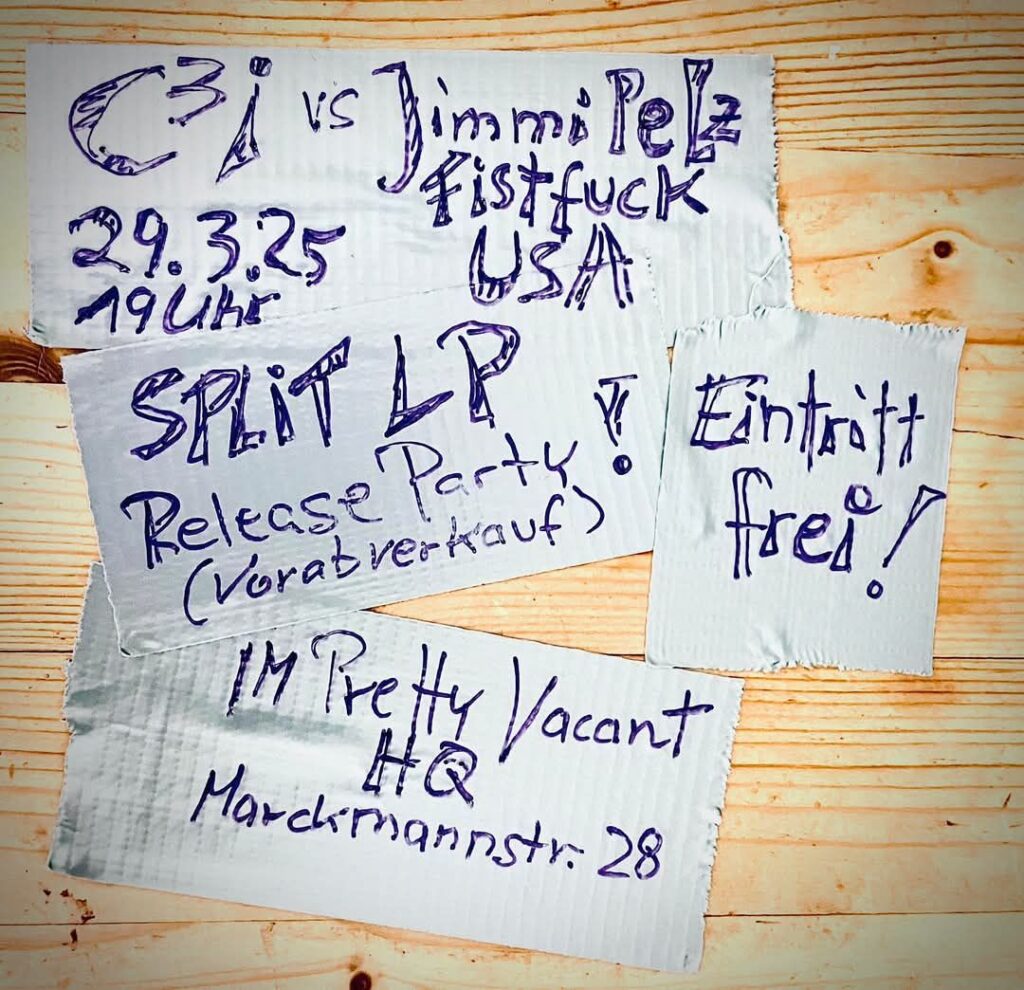 C³i vs Jimmi Pelz
Fistfuck
USA
29.3.25
19 Uhr
SPLiT LP
Release Party!
(Vorabverkauf)
Eintritt
frei!
IM Pretty Vacant
HQ
Marckmannstr. 28